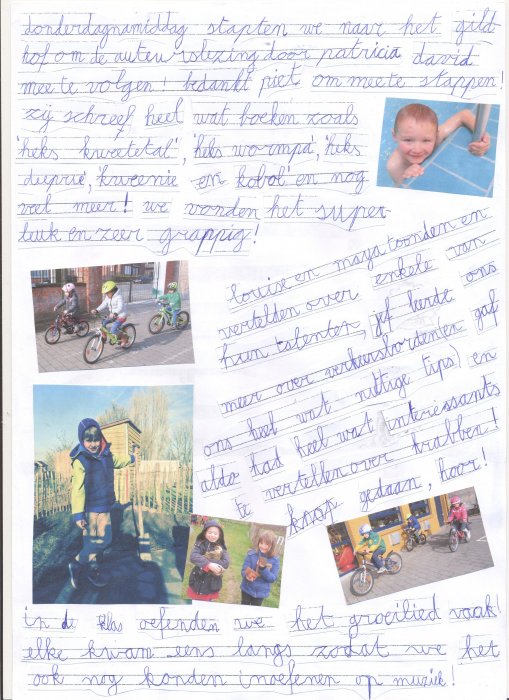 donderdagnamiddag stapten we naar het gild
hof om de auteurslezing door patricia david
mee te volgen! bedankt piet om mee te stappen!
zij schreef heel wat boeken zoals
'heks kwetetal', 'heks wormpa', 'heks
dieprie', 'kweenie en kobol' en nog
veel meer! we vonden het super
leuk en zeer grappig!
louise en maya toonden en
vertelden over enkele van
hun talenten, jef leerde ons
meer over verkeersborden (en gaf
ons heel wat nuttige tips) en
aldo had heel wat interessants
te vertellen over krabben!
knap gedaan, hoor!
in de klas oefenden we het groeilied vaak!
elke kwam eens langs zodat we het
ook nog konden inoefenen op muziek!